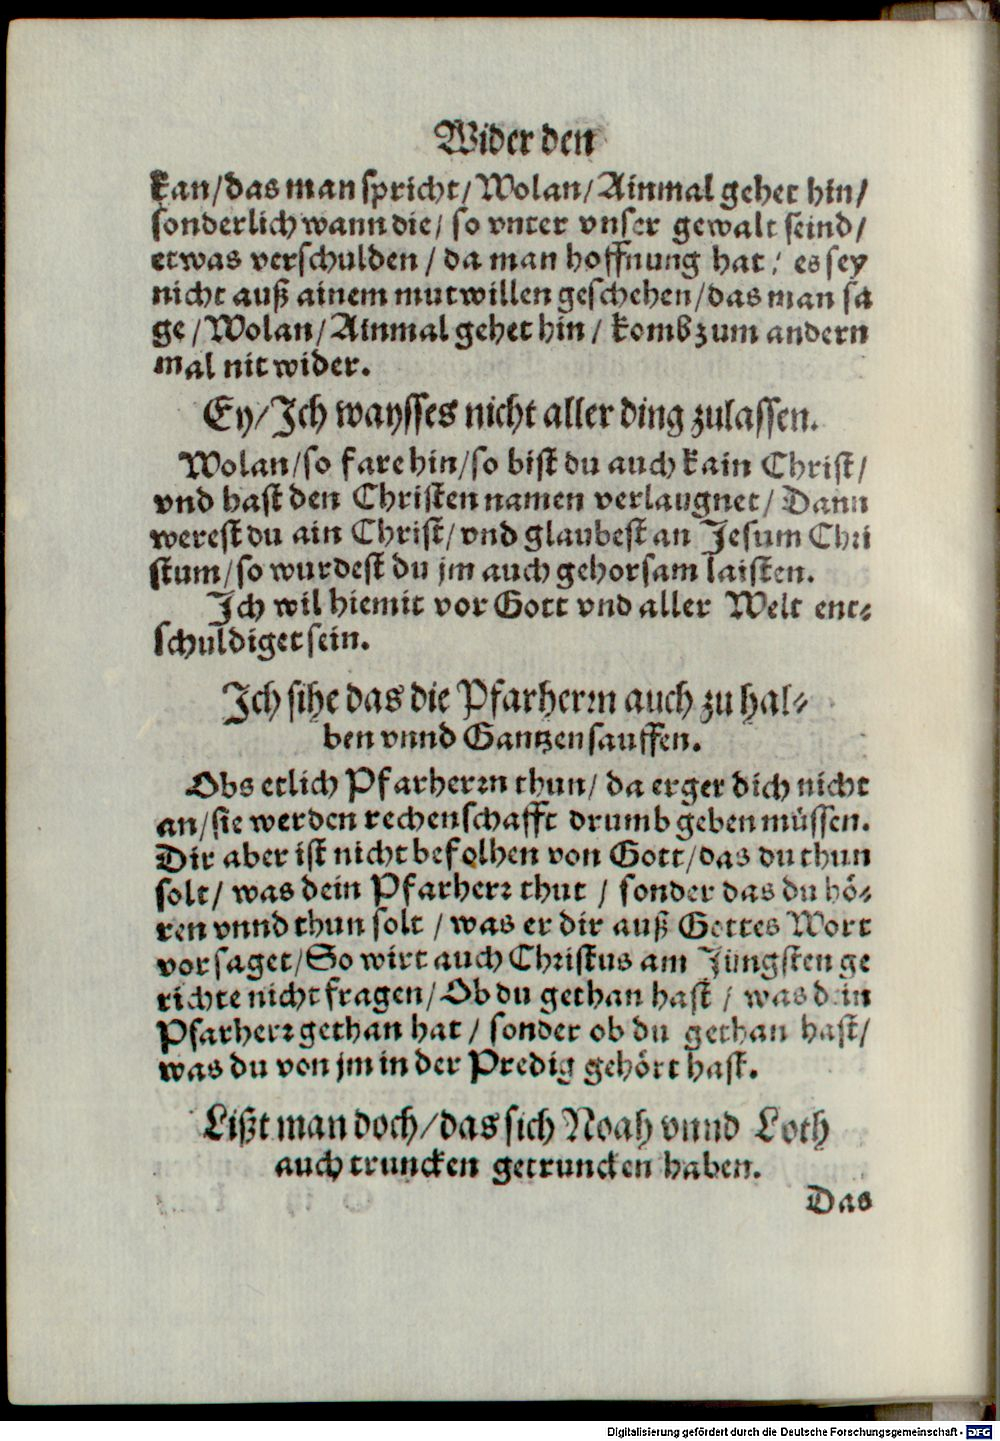 Wider den
kan/das man spricht/Wolan/Ainmal gehet hin/
sonderlich wann die/ so vnter vnser gewalt seind/
etwas verschulden / da man hoffnung hat / es sey
nicht auß ainem mutwillen geschehen/das man sa
ge/Wolan/Ainmal gehet hin/ komb zum andern
mal nit wider.
Ey/Ich waysses nicht aller ding zulassen.
Wolan/so fare hin/so bist du auch kain Christ/
vnd hast den Christen namen verlaugnet/ Dann
werest du ain Christ/ vnd glaubest an Jesum Chri
stum/so wurdest du jm auch gehorsam laisten.
Ich wil hiemit vor Gott vnd aller Welt ent⸗
schuldiget sein.
Ich sihe das die Pfarherrn auch zu hal⸗
ben vnnd Gantzen sauffen.
Obs etlich Pfarherrn thun/ da erger dich nicht
an/sie werden rechenschafft drumb geben müssen.
Dir aber ist nicht befolhen von Gott/das du thun
solt/ was dein Pfarherr thut / sonder das du hö⸗
ren vnnd thun solt / was er dir auß Gottes Wort
vor saget/So wirt auch Christus am Jüngsten ge
richte nicht fragen/Ob du gethan hast / was dein
Pfarherr gethan hat / sonder ob du gethan hast/
was du von jm in der Predig gehört hast.
Lißt man doch/das sich Noah vnnd Loth
auch truncken getruncken haben.
Das
Digitalisierung gefördert durch die Deutsche Forschungsgemeinschaft - DFG